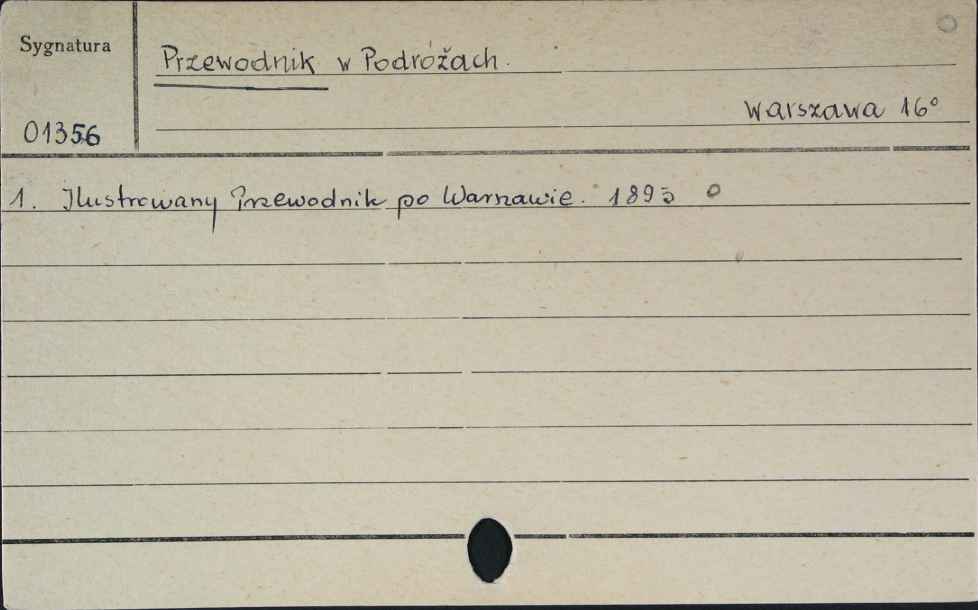 Sygnatura
Przewodnik w Podróżach.
Warszawa 16°
01356
1. Ilustrowany Przewodnik po Warszawie. 1893